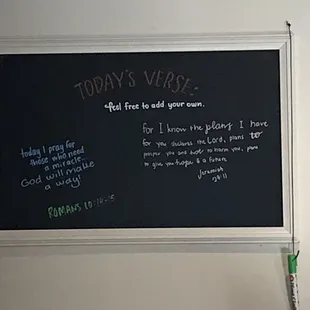 TODAY'S VERSE:
feel free to add your own.
today I pray for
those who need
a miracle...
God will make
a way!
ROMANS 10:14-15
for I know the plans I have
for you declares the Lord, plans to
prosper you and not to harm you, plans
to give you hope & a future
Jeremiah
29:11